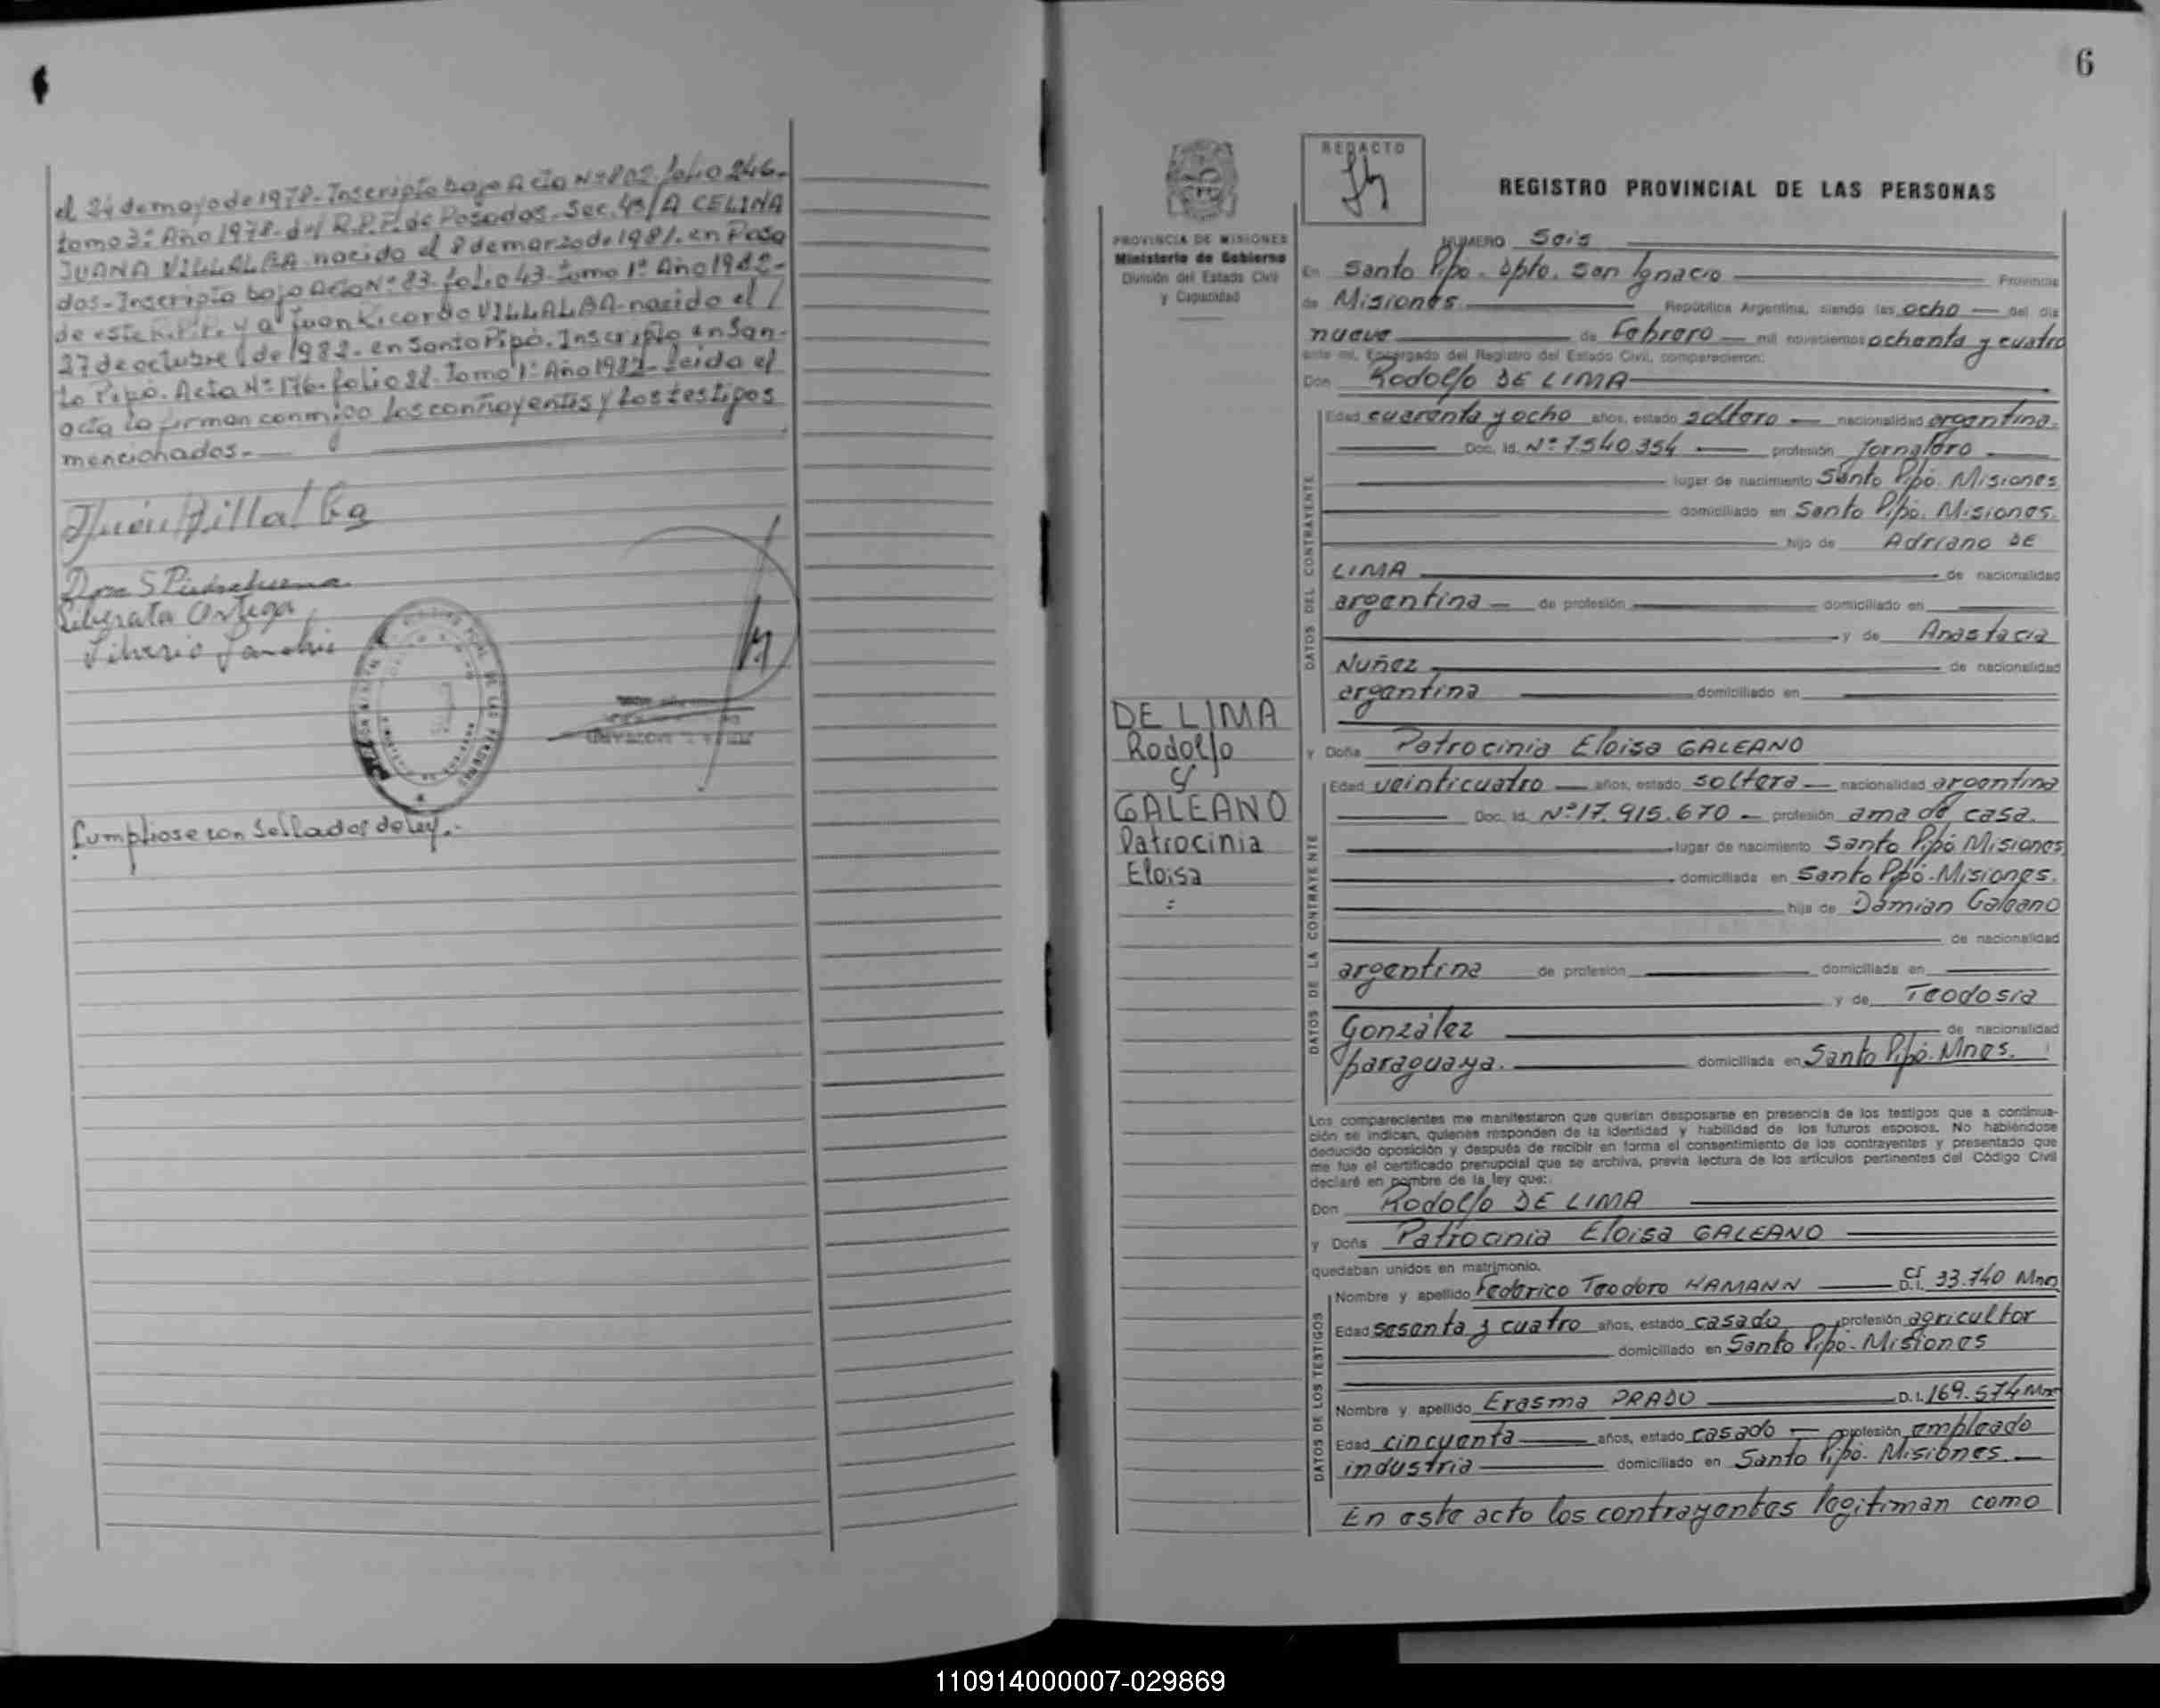 el 24 de mayo de 1978. Inscripto bajo Acta Nº 802 folio 246.
tomo 3º Año 1978. del R.P.P. de Posadas. Sec. 4º/A CELINA
JUANA VILLALBA nacida el 8 de marzo de 1981. en Posa
das-Inscripta bajo Acta Nº 83. folio 43. tomo 1º Año 1982-
de este R.P.P. y a Juan Ricardo VILLALBA nacido el /
27 de octubre de 1982. en Santo Pipó. Inscripto en San-
to Pipó. Acta Nº 176. folio 88. Tomo 1º Año 1982. Leida el
acta la firman conmigo los contrayentes y los testigos
mencionados.-
Juan Villalba
Dora S
Liberata Ortega
Cumpliose con Sellados de ley.-
6
REDACTO
REGISTRO PROVINCIAL DE LAS PERSONAS
PROVINCIA DE MISIONES
Ministerio de Gobierno
División del Estado Civil
y Capacidad
NUMERO Seis
En Santo Pipó. Dpto. San Ignacio Provincia
de Misiones República Argentina, siendo las ocho del día
nueve de Febrero mil novecientos ochenta y cuatro
ante mí, Encargado del Registro del Estado Civil, comparecieron:
Don Rodolfo DE LIMA
Edad cuarenta y ocho años, estado soltero nacionalidad argentina.
Doc. Id. Nº 7.540.354 profesión Jornalero
lugar de nacimiento Santo Pipó. Misiones
domiciliado en Santo Pipó. Misiones.
hijo de Adriano DE
LIMA de nacionalidad
argentina de profesión domiciliado en
y de Anastacia
Nuñez de nacionalidad
argentina domiciliado en
DATOS DEL CONTRAYENTE
DE LIMA
Rodolfo
y
GALEANO
Patrocinia
Eloisa
=
y Doña Patrocinia Eloisa GALEANO
Edad veinticuatro años, estado soltera nacionalidad argentina
Doc. Id. Nº 17.915.670 profesión ama de casa.
lugar de nacimiento Santo Pipó Misiones
domiciliada en Santo Pipó-Misiones.
hija de Damian Galeano
de nacionalidad
argentina de profesión domiciliada en
y de Teodosia
González de nacionalidad
paraguaya. domiciliada en Santo Pipó. Mnes.
DATOS DE LA CONTRAYENTE
Los comparecientes me manifestaron que querían desposarse en presencia de los testigos que a continua-
ción se indican, quienes responden de la identidad y habilidad de los futuros esposos. No habiéndose
deducido oposición y después de recibir en forma el consentimiento de los contrayentes y presentado que
me fue el certificado prenupcial que se archiva, previa lectura de los artículos pertinentes del Código Civil
declaré en nombre de la ley que:
Don Rodolfo DE LIMA
y Doña Patrocinia Eloisa GALEANO
quedaban unidos en matrimonio.
Nombre y apellido Federico Teodoro HAMANN CI D.I. 33.740 Mnes
Edad sesenta y cuatro años, estado casado profesión agricultor
domiciliado en Santo Pipó-Misiones
Nombre y apellido Erasma PRADO D.I. 169.574 Mnes
Edad cincuenta años, estado casado profesión empleado
industria domiciliado en Santo Pipó. Misiones.
DATOS DE LOS TESTIGOS
En este acto los contrayentes legitiman como
110914000007-029869